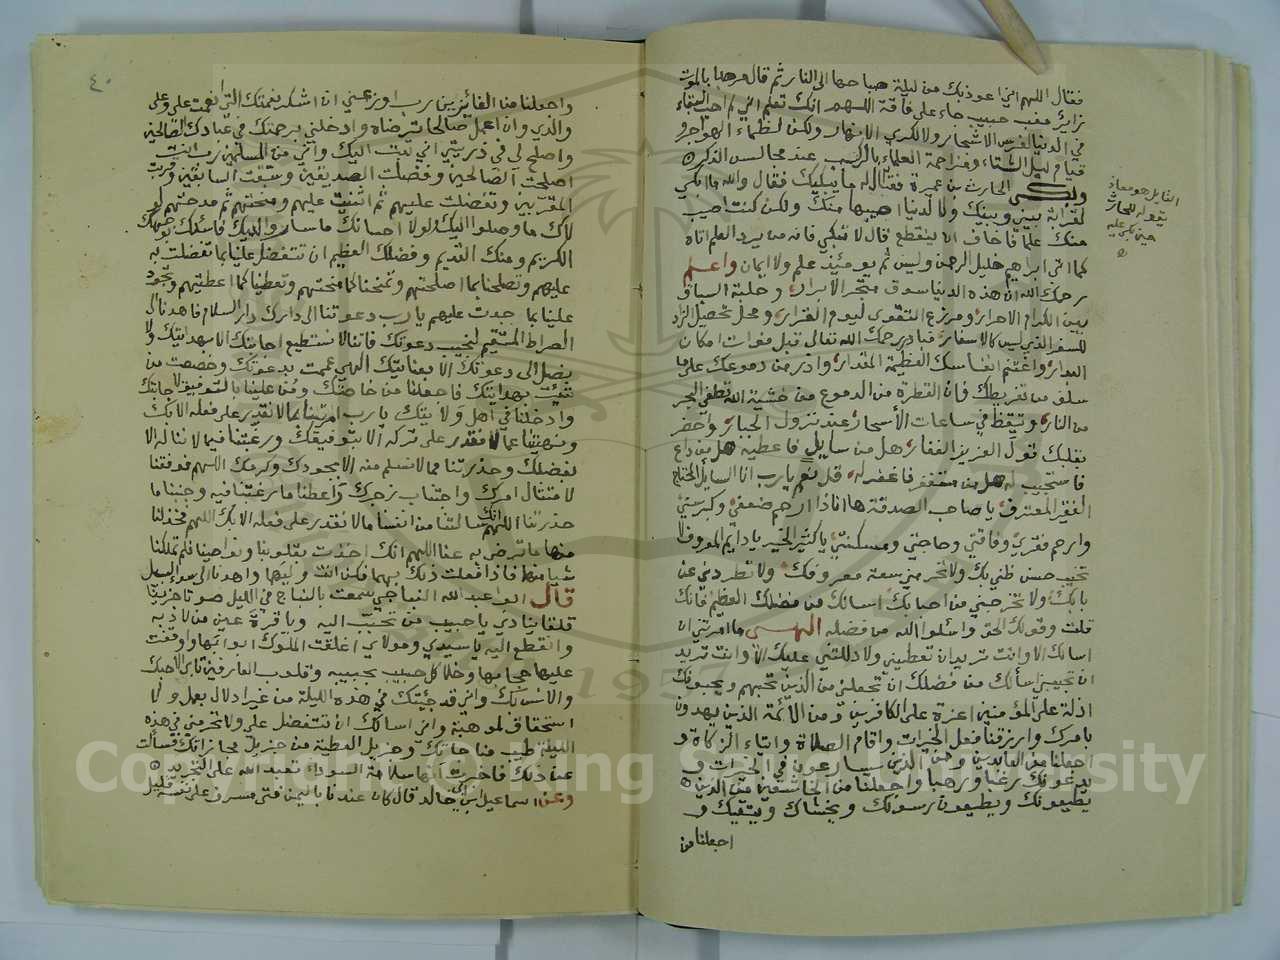 فقال اللهم اني اعوذ بك من ليلة صباحها الى النار ثم قال مرحبا بالموت
زائر مغب حبيب جاء على فاقة اللهم انك تعلم اني لم احب البقاء
في الدنيا لغرس الاشجار ولا لكري الانهار ولكن لظماء الهواجر و
قيام ليل الشتاء ومزاحمة العلماء بالركب عند مجالس الذكر
وبكى الحارث بن عميرة فقال له ما يبكيك فقال والله ما ابكي
لقرابة بيني وبينك ولا لدنيا اصيبها منك ولكن كنت اصيب
منك علما فاخاف ان ينقطع قال لا تبكي فانه من يرد العلم اتاه
كما اتى ابراهيم خليل الرحمن وليس ثم يومئذ علم ولا ايمان واعلم
يرحمك الله ان هذه الدنيا سوق متجر الابرار وحلبة السباق
بين الكرام الاحرار ومزرع التقوى ليوم القرار ومحل تحصيل الزاد
للسفر الذي ليس كالاسفار فبادر يرحمك الله تعالى قبل فوات امكان
البدار واغتنم انفاسك العظيمة المقدار واذر من دموعك على ما
سلف من تفريطك فان القطرة من الدموع من خشية الله تطفي البحر
من النار وتيقظ في ساعات الأسحار عند نزول الجبار واحضر
بقلبك قول العزيز الغفار هل من سايل فاعطيه هل من داع
فاستجيب له هل من مستغفر فاغفر له قل نعم يا رب انا السايل المحتاج
الفقير المعترف يا صاحب الصدقة ها انا ذا ارحم ضعفي وكبر سني
وارحم فقري وفاقتي وحاجتي ومسكنتي يا كثير الخير يا دايم المعروف لا
تخيب حسن ظني بك ولا تحرمني سعة معروفك ولا تطردني عن
بابك ولا تخرجني من احبابك اسالك من فضلك العظيم فانك
قلت وقولك الحق واسئلوا الله من فضله الهي ما امرتني ان
اسالك الا وانت تريد ان تعطيني ولا دللتني عليك الا وانت تريد
ان تجيبني اسألك من فضلك ان تجعلني من الذين تحبهم ويحبونك
اذلة على المؤمنين اعزة على الكافرين ومن الائمة الذين يهدون
بامرك وارزقنا فعل الخيرات واقام الصلاة وايتاء الزكاة و
اجعلنا من العابدين ومن الذين يسارعون في الخيرات و
يدعونك رغبا ورهبا واجعلنا من الخاشعين من الذين
يطيعونك ويطيعون رسولك ويخشاك ويتقيك و
اجعلنا من
القايل هو معاذ
يقوله للحارث
حين بكى عليه
٤٠
واجعلنا من الفائزين رب اوزعني ان اشكر نعمتك التي انعمت علي وعلى
والدي وان اعمل صالحا ترضاه وادخلني برحمتك في عبادك الصالحين
واصلح لي في ذريتي اني تبت اليك واني من المسلمين رب انت
اصلحت الصالحين وفضلت الصديقين وسبقت السابقين وقربت
المقربين وتفضلت عليهم ثم اثنيت عليهم ومنحتهم ثم مدحتهم لو
لاك ما وصلوا اليك ولولا احسانك ما ساروا اليك فاسئلك بوجهك
الكريم ومنك القديم وفضلك العظيم ان تتفضل علينا بما تفضلت به
عليهم وتصلحنا بما اصلحتهم وتمنحنا كما منحتهم وتعطينا كما اعطيتهم وتجود
علينا بما جدت عليهم يا رب دعوتنا الى دارك دار السلام فاهدنا الى
الصراط المستقيم لنجيب دعوتك فاننا لا نستطيع اجابتك الا بهدايتك ولا
نصل الى دعوتك الا بعنايتك الهي عممت بدعوتك وخصصت من
شئت بهدايتك فاجعلنا من خاصتك ومن علينا بالتوفيق لاجابتك
وادخلنا في اهل ولايتك يا رب امرتنا بما لا نقدر على فعله الا بك
ونهيتنا عما لا نقدر على تركه الا بتوفيقك ورغبتنا فيما لا نناله الا
بفضلك وحذرتنا مما لا نسلم منه الا بجودك وكرمك اللهم فوفقنا
لامتثال امرك واجتناب زجرك واعطنا ما رغبتنا فيه وجنبنا ما
حذرتنا اللهم انك سالتنا من انفسنا ما لا نقدر على فعله الا بك اللهم فخذ لنا
منها ما ترضى به عنا اللهم انك اخذت بقلوبنا ونواصينا فلم تملكنا
شيا منها فاذا فعلت ذلك بهما فكن انت وليها واهدنا الى سواء السبيل
قال ابو عبد الله النباجي سمعت بالنباج في الليل صوتا حزينا
قلقا ينادي يا حبيب من تحبب اليه ويا قرة عين من لاذ به
وانقطع اليه يا سيدي ومولاي اغلقت الملوك ابوابها واوقفت
عليها حجابها وخلا كل حبيب بحبيبه وقلوب العارفين تأبى الا حبك
والانس بك واني قد جئتك في هذه الليلة من غير ادلال بعمل ولا
استحقاق لموهبة واني اسالك ان تتفضل علي ولا تحرمني في هذه
الليلة طيب مناجاتك وجزيل العطية من جزيل مجازاتك فسألت
عن ذلك فاخبرت انها سلامة السوداء تعبد الله على التجريد
وعن اسماعيل ابن خالد قال كان عندنا باليمن فتى مسرف على نفسه قليل
Copyright © King Saud University
1957